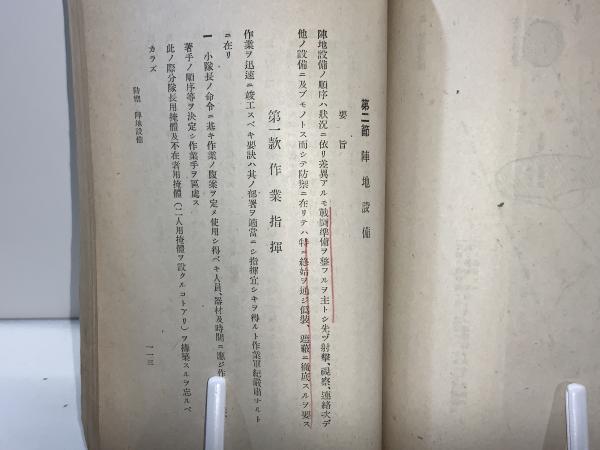 第二節 陣地設備
要旨
陣地設備ノ順序ハ狀況ニ依リ差異アルモ戰鬪準備ヲ整フルヲ主トシ先ヅ射擊、視察、連絡次デ
他ノ設備ニ及ブモノトス而シテ防禦ニ在リテハ特ニ終始ヲ通ジ僞裝、遮蔽ニ徹底スルヲ要ス
第一款 作業指揮
作業ヲ迅速ニ竣工スベキ要訣ハ其ノ部署ヲ適當ニシ指揮宜シキヲ得ルト作業軍紀嚴肅ナルト
ニ在リ
一 小隊長ノ命令ニ基キ作業ノ腹案ヲ定メ使用シ得ベキ人員、器材及時間ニ應ジ作
著手ノ順序等ヲ決定シ作業手ヲ區處ス
此ノ際分隊長用掩體及不在者用掩體(二人用掩體ヲ設クルコトアリ)ヲ構築スルヲ忘ルベ
カラズ
防禦 陣地設備
一一三